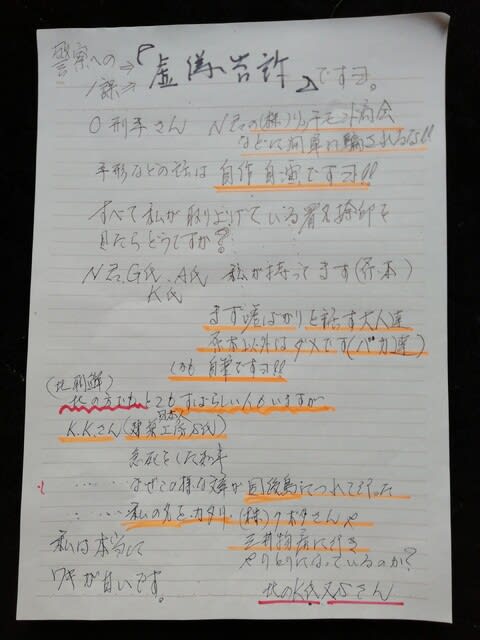 警察への⇒『虚偽告訴』ですヨ。
1課⇒
O刑事さん N君の(株)リッチモンド商会
などに 簡単に騙されるな!!
手形などの話は 自作自演ですヨ!!
すべて私が取り上げている署名捺印を
見たらどうですか?
N君、G氏、A氏 私が持ってます
K氏
まず嘘ばかりと話す大人達
以外はダメです(バカ達)
しかも 自筆ですヨ!!
(北朝鮮)
北の方にもとてもすばらしい人もいますが
日本人
K.Kさん(建築工房S氏)
急死をした
‥‥‥ なぜこの様な が国後島につれて行った
‥‥ 私の名をカタリ、(株)クボタさんや
私は本当に 三井物産に行き
やりとりになっているのか?
ワキが甘いです。
北のK氏又Sさん